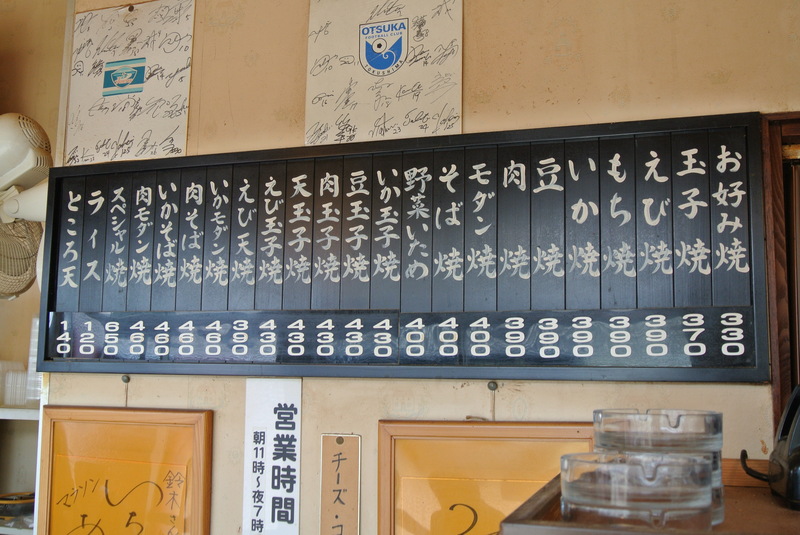 OTSUKA
FOOTBALL CLUB
TOKUSHIMA
お好み焼 330
玉子焼 370
えび焼 390
もち焼 390
いか焼 390
豆焼 390
肉焼 390
モダン焼 400
そば焼 400
野菜いため 400
いか玉子焼 430
豆玉子焼 430
肉玉子焼 430
天玉子焼 430
えび玉子焼 430
えび天焼 390
いかモダン焼 460
肉そば焼 460
いかそば焼 460
肉モダン焼 460
スペシャル焼 650
ライス 120
ところ天 140
営業時間
朝11時〜夜7時
チーズ・コ
鈴木さん
マラソン